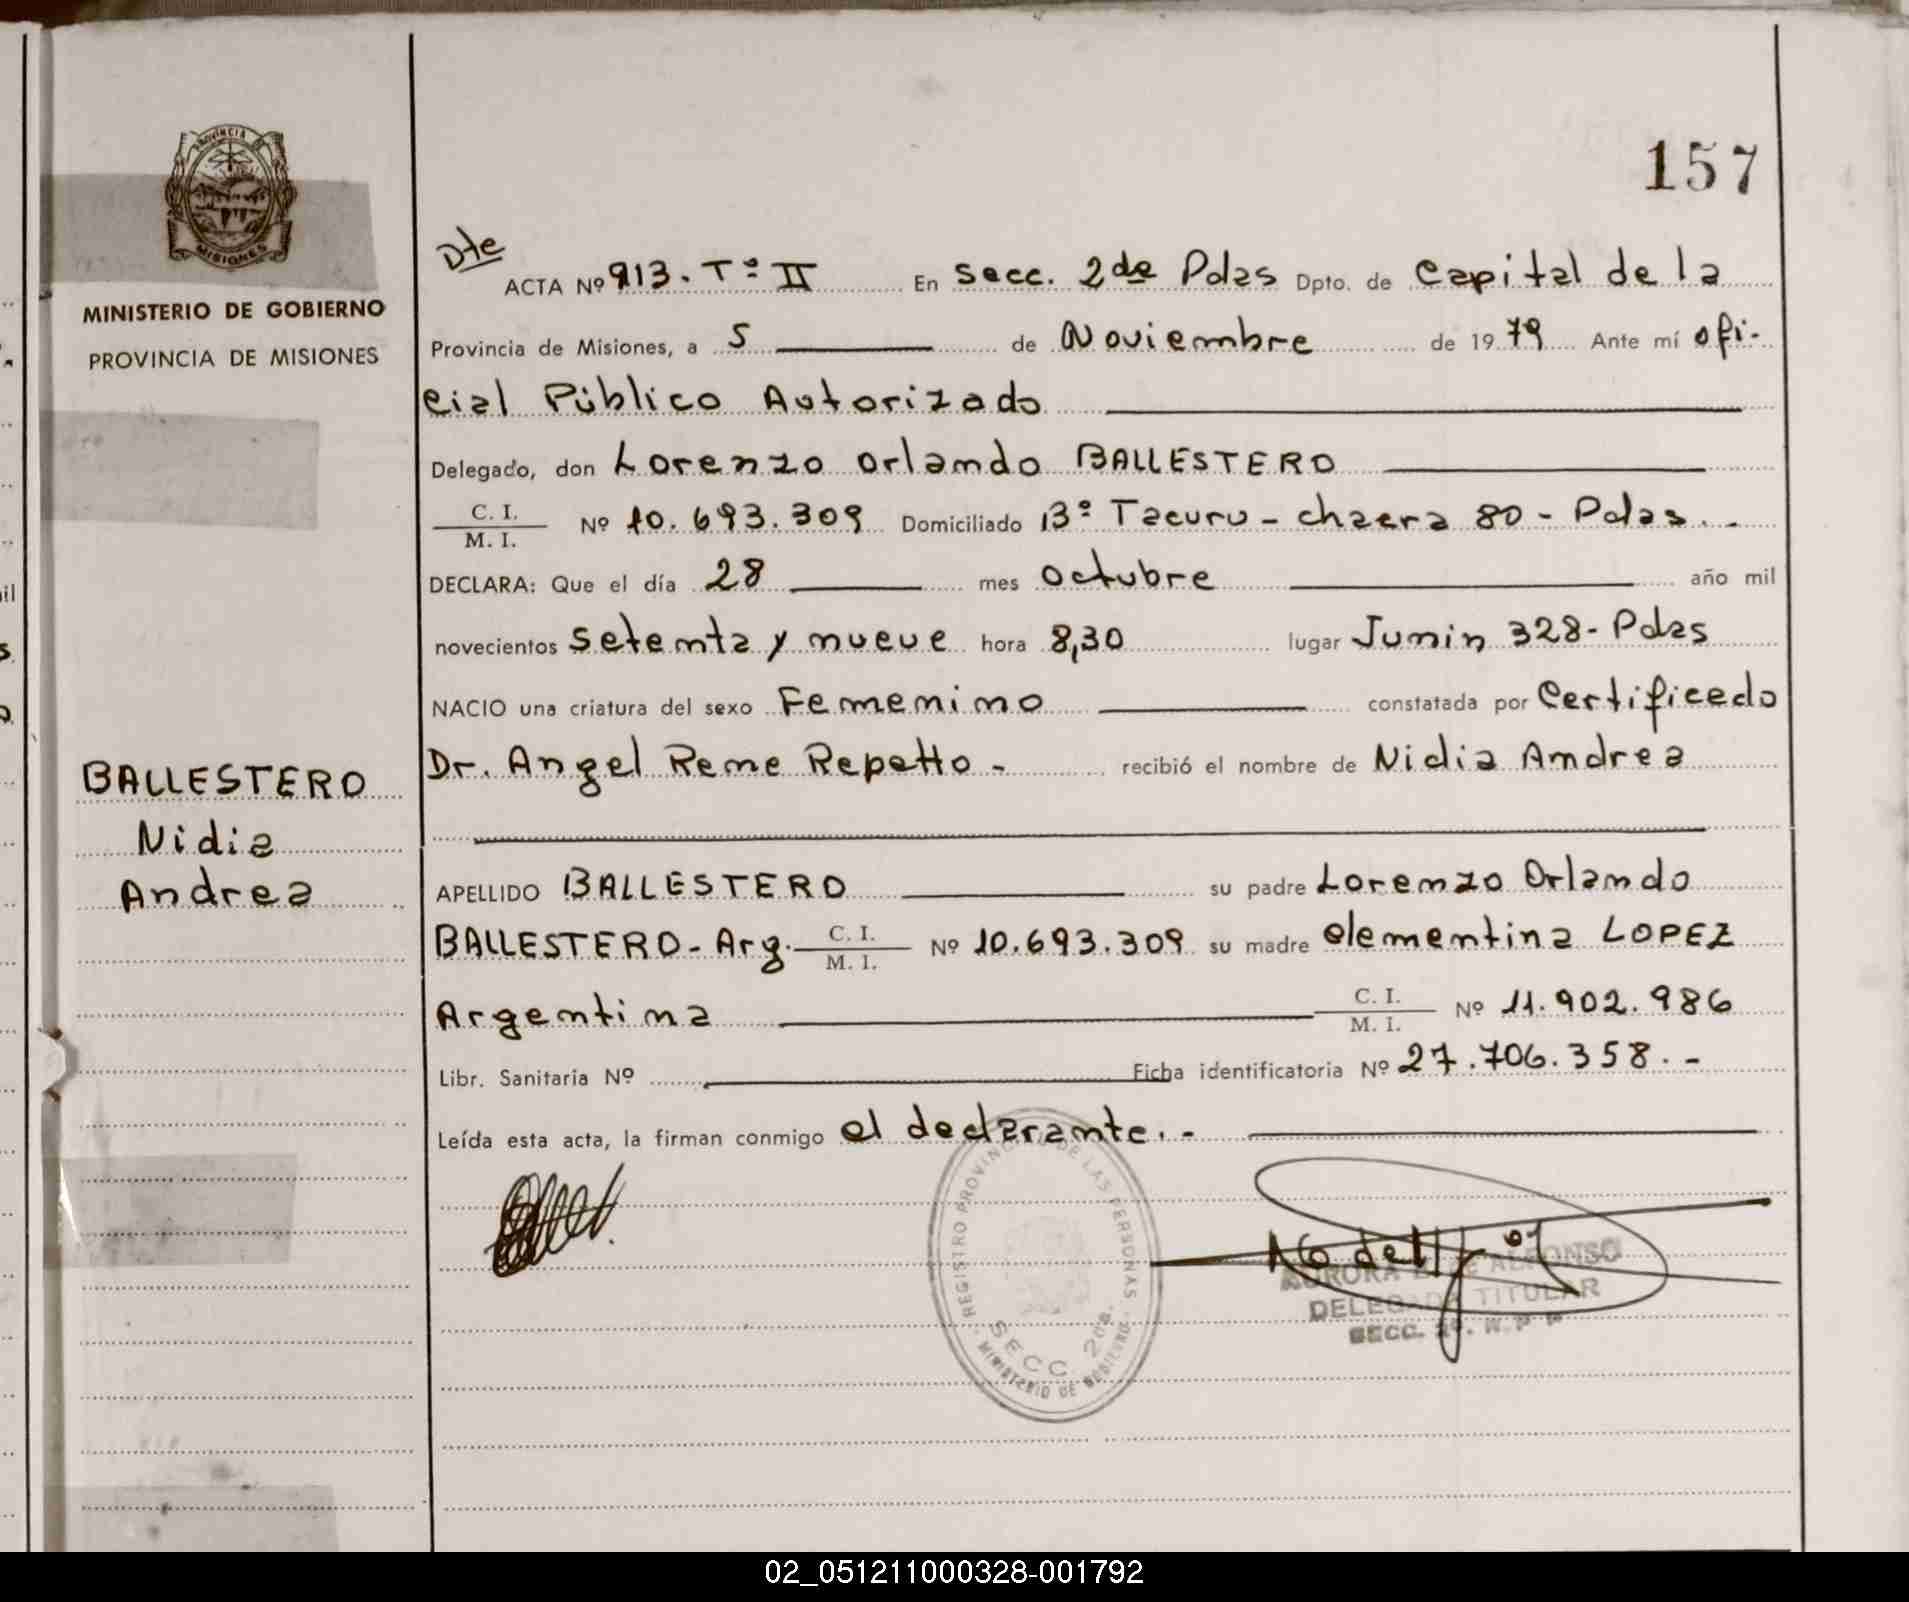 PROVINCIA DE
MISIONES
MINISTERIO DE GOBIERNO
PROVINCIA DE MISIONES
BALLESTERO
Nidia
Andrea
157
Dte
ACTA Nº 913. Tº II En secc. 2da Pdas Dpto. de Capital de la
Provincia de Misiones, a 5 de Noviembre de 1979 Ante mí ofi-
cial Público Autorizado
Delegado, don Lorenzo Orlando BALLESTERO
C. I.
M. I. Nº 10.693.309 Domiciliado Bº Tacuru - chacra 80 - Pdas. -
DECLARA: Que el día 28 mes octubre año mil
novecientos setenta y nueve hora 8,30 lugar Junin 328- Pdas
NACIO una criatura del sexo Femenino constatada por Certificado
Dr. Angel Rene Repetto - recibió el nombre de Nidia Andrea
APELLIDO BALLESTERO su padre Lorenzo Orlando
BALLESTERO- Arg. C. I. M. I. Nº 10.693.309 su madre Clementina LOPEZ
Argentina C. I. M. I. Nº 11.902.986
Libr. Sanitaria Nº Ficha identificatoria Nº 27.706.358. -
Leída esta acta, la firman conmigo el declarante. -
REGISTRO PROVINCIAL DE LAS PERSONAS
SECC. 2da.
MINISTERIO DE GOBIERNO
AURORA E. DE ALFONSO
DELEGADA TITULAR
SECC. 2ª. R. P. P.
02_051211000328-001792